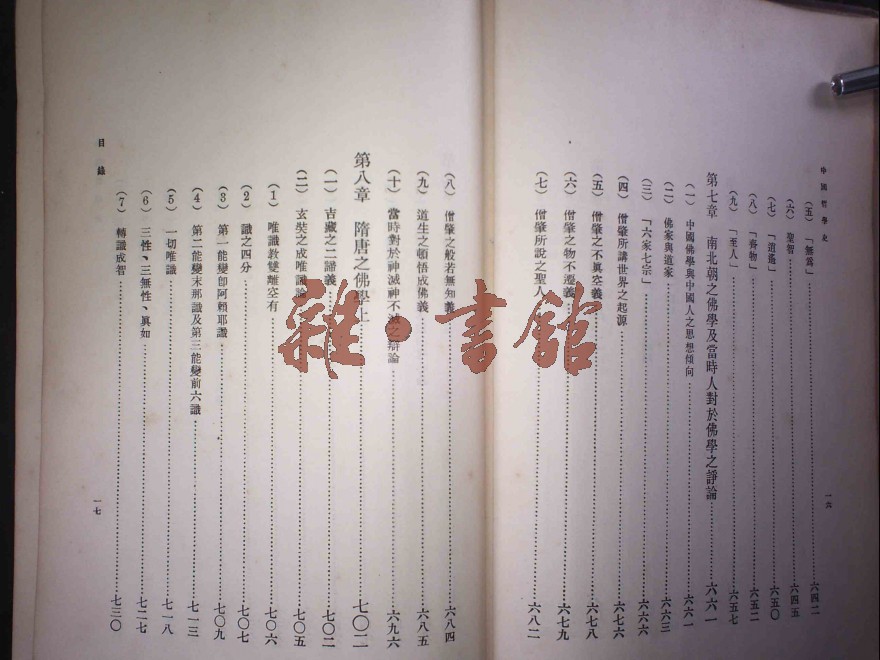 中國哲學史
(五)「無爲」……六四二
(六)聖智……六四五
(七)「逍遙」……六五〇
(八)「齊物」……六五二
(九)「至人」……六五七
第七章 南北朝之佛學及當時人對於佛學之諍論……六六一
(一)中國佛學與中國人之思想傾向……六六一
(二)佛家與道家……六六三
(三)「六家七宗」……六六六
(四)僧肇所講世界之起源……六七六
(五)僧肇之不眞空義……六七八
(六)僧肇之物不遷義……六七九
(七)僧肇所說之聖人……六八二
一六
(八)僧肇之般若無知義……六八四
(九)道生之頓悟成佛義……六八五
(十)當時對於神滅神不滅之辯論……六九六
第八章 隋唐之佛學上……七〇二
(一)吉藏之二諦義……七〇二
(二)玄奘之成唯識論……七〇五
(1)唯識教雙離空有……七〇六
(2)識之四分……七〇七
(3)第一能變卽阿賴耶識……七〇九
(4)第二能變末那識及第三能變前六識……七一三
(5)一切唯識……七一八
(6)三性、三無性、眞如……七二七
(7)轉識成智……七三〇
目錄
一七
雜·書館